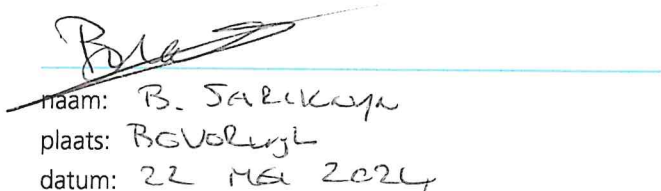 naam: B. SARIKAYA
plaats: BEVERWIJK
datum: 22 MEI 2024